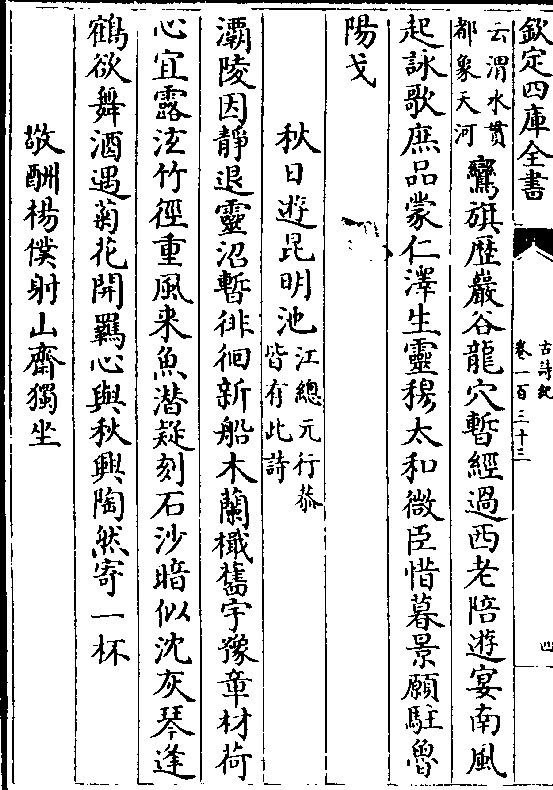 欽定四庫全書
古詩紀
卷一百三十三
四
云渭水貫
都象天河
鸞旗歴巖谷龍穴暫經過西老陪遊宴南風
起詠歌庶品蒙仁澤生靈穆太和微臣惜暮景願駐魯
陽戈
秋日遊昆明池
江總元行恭
皆有此詩
灞陵因靜退靈沼暫徘徊新船木蘭檝舊宇豫章材荷
心宜露泫竹徑重風来魚潛疑刻石沙暗似沈灰琴逢
鶴欲舞酒遇菊花開羈心與秋興陶然寄一杯
敬酬楊僕射山齋獨坐